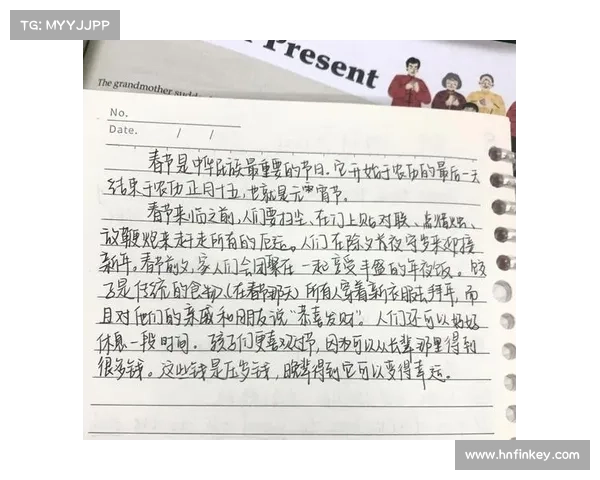 TG: MYYJJPP
Present
The grandmother sudde
No.
Date. / /
春节是中华民族最重要的节日。它开始于农历的最后一天
结束于农历正月十五,也就是元宵节。
春节来临之前,人们要扫尘、在门上贴对联、点蜡烛、
放鞭炮来赶走所有的厄运。人们在除夕前夜守岁来迎接
新年。春节前夕,家人们会团聚在一起享受丰盛的年夜饭。饺
子是传统的食物(在春节那天)所有人穿着新衣服去拜年,而
且对他们的亲戚和朋友说“恭喜发财”。人们还可以好好
休息一段时间。孩子们更喜欢春节,因为可以从长辈那里得到
很多钱。这些钱是压岁钱,晚辈得到它可以变得幸运。
www.hnfinkey.com